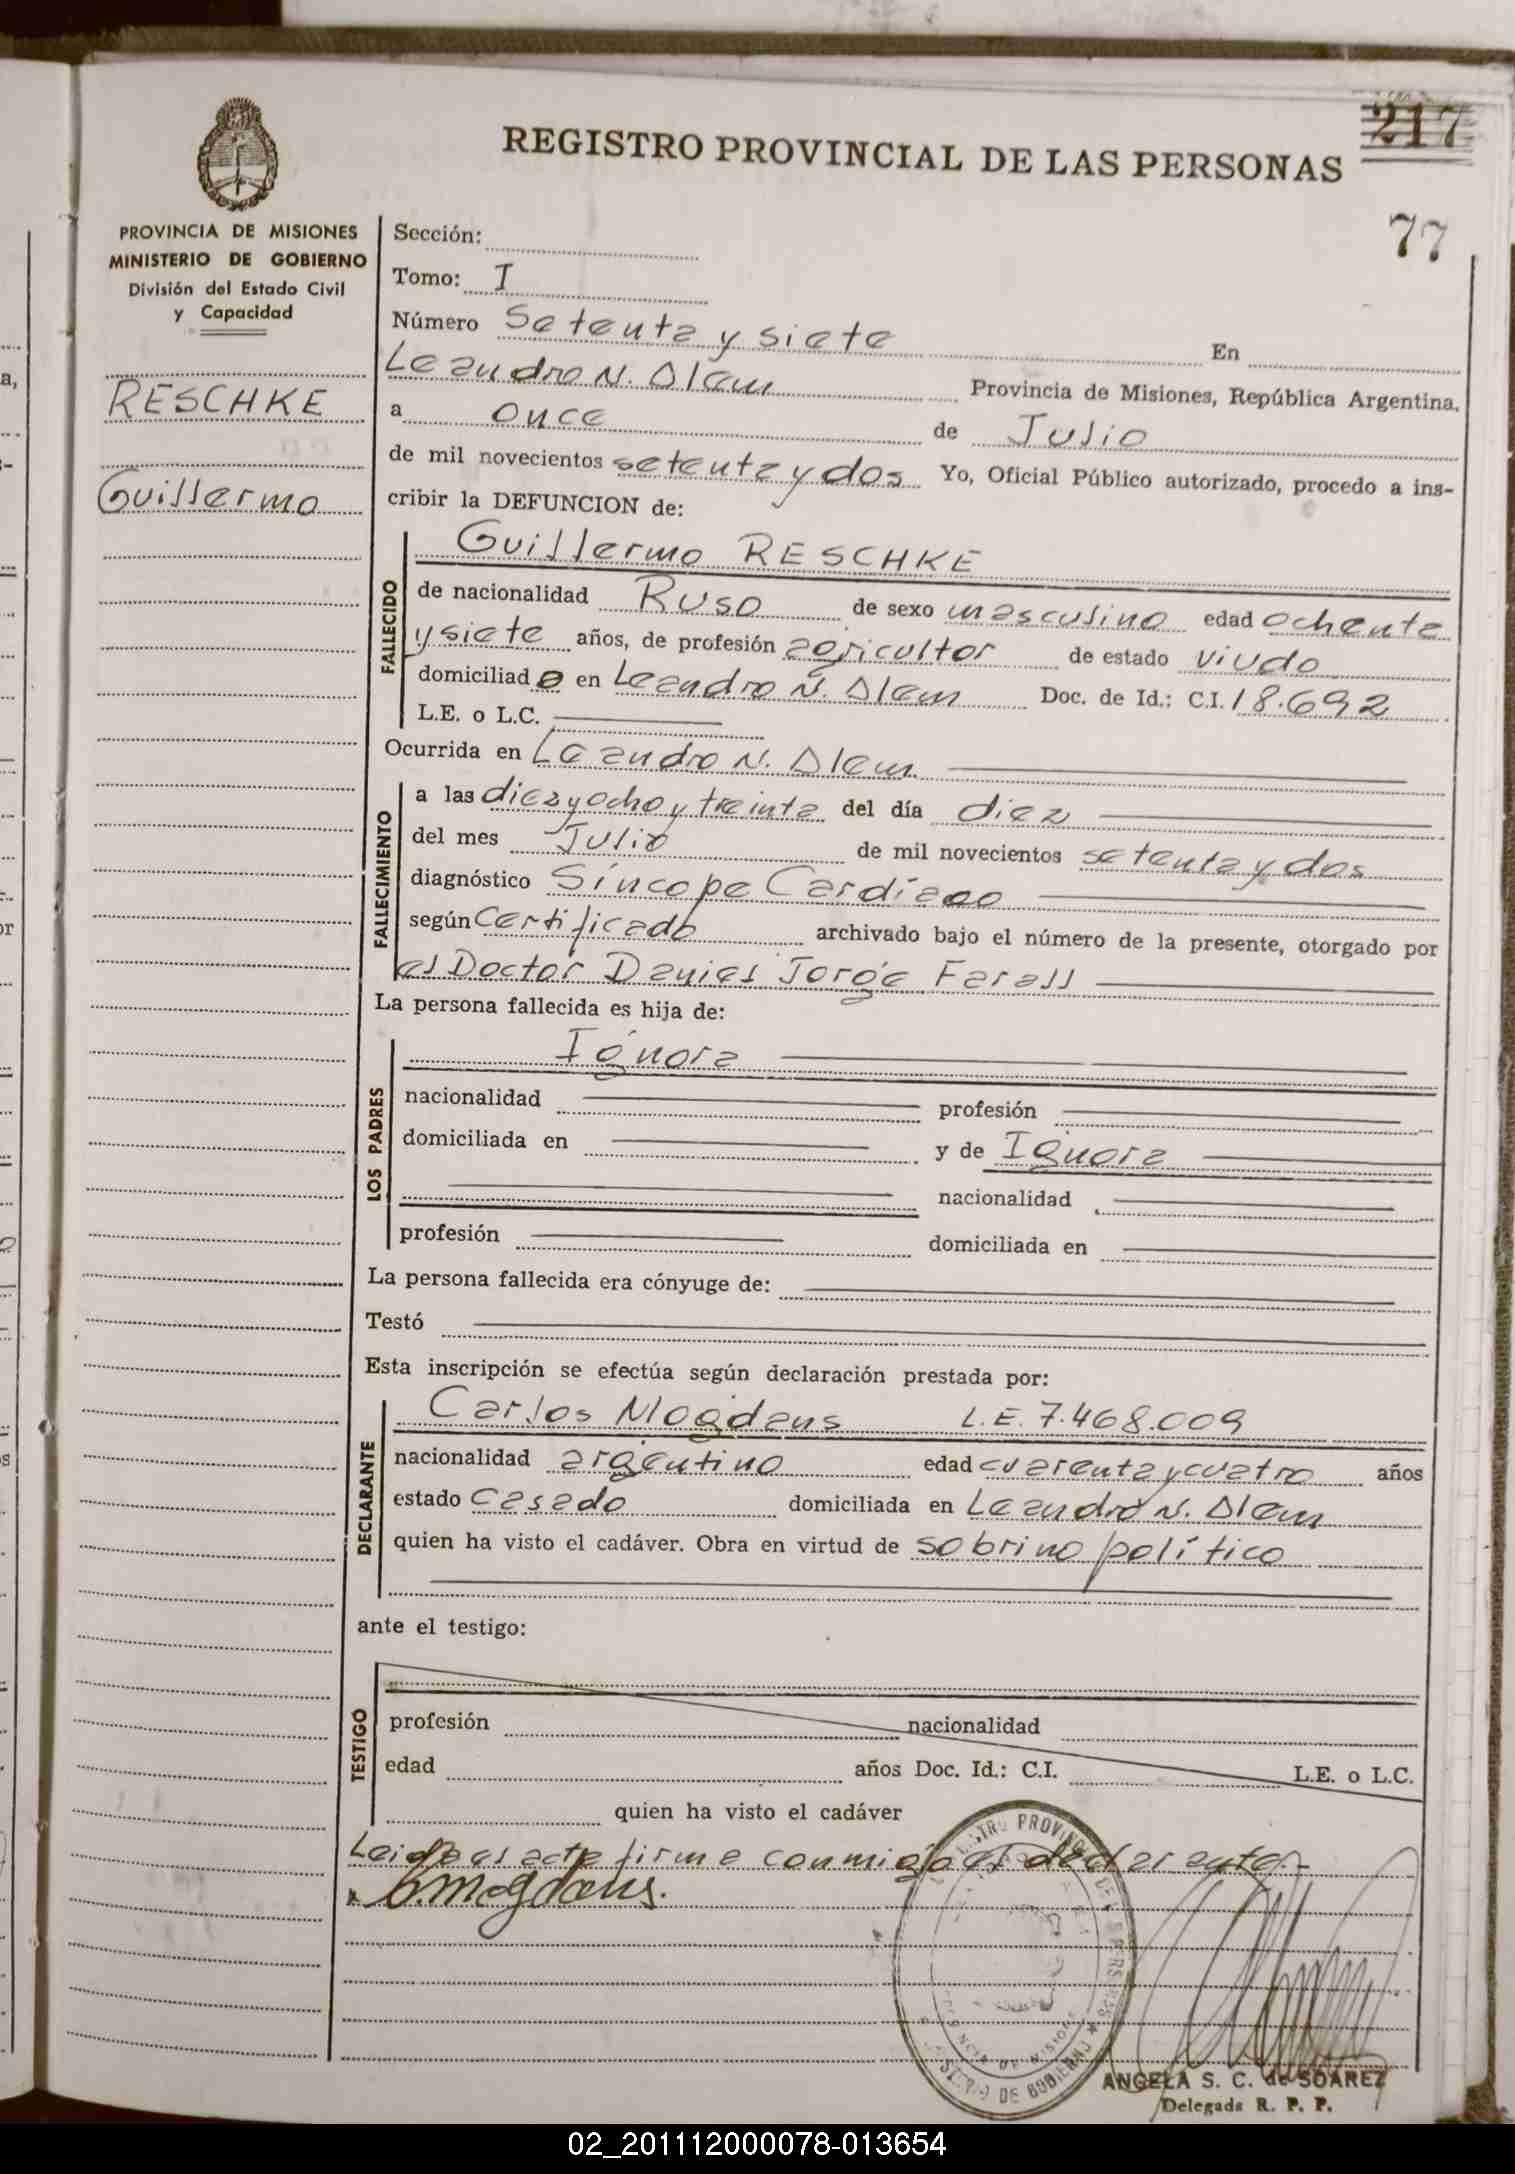 217
REGISTRO PROVINCIAL DE LAS PERSONAS
77
PROVINCIA DE MISIONES
MINISTERIO DE GOBIERNO
División del Estado Civil
y Capacidad
RESCHKE
Guillermo
Sección:
Tomo: I
Número Setenta y siete En
Leandro N. Alem Provincia de Misiones, República Argentina,
a once de Julio
de mil novecientos setenta y dos Yo, Oficial Público autorizado, procedo a ins-
cribir la DEFUNCION de:
FALLECIDO
Guillermo RESCHKE
de nacionalidad Ruso de sexo masculino edad ochenta
y siete años, de profesión agricultor de estado viudo
domiciliado en Leandro N. Alem Doc. de Id.: C.I. 18.692
L.E. o L.C.
Ocurrida en Leandro N. Alem
FALLECIMIENTO
a las diez y ocho y treinta del día diez
del mes Julio de mil novecientos setenta y dos
diagnóstico Síncope Cardiaco
según Certificado archivado bajo el número de la presente, otorgado por
el Doctor Daniel Jorge Farall
La persona fallecida es hija de:
LOS PADRES
Ignora
nacionalidad profesión
domiciliada en y de Ignora
nacionalidad
profesión domiciliada en
La persona fallecida era cónyuge de:
Testó
Esta inscripción se efectúa según declaración prestada por:
DECLARANTE
Carlos Mogdans L.E. 7.468.009
nacionalidad argentino edad cuarenta y cuatro años
estado casado domiciliada en Leandro N. Alem
quien ha visto el cadáver. Obra en virtud de sobrino político
ante el testigo:
TESTIGO
profesión nacionalidad
edad años Doc. Id.: C.I. L.E. o L.C.
quien ha visto el cadáver
Leida el acta firma conmigo el declarante.-
C. Mogdans.
ANGELA S. C. de SOAREZ
Delegada R. P. P.
02_201112000078-013654